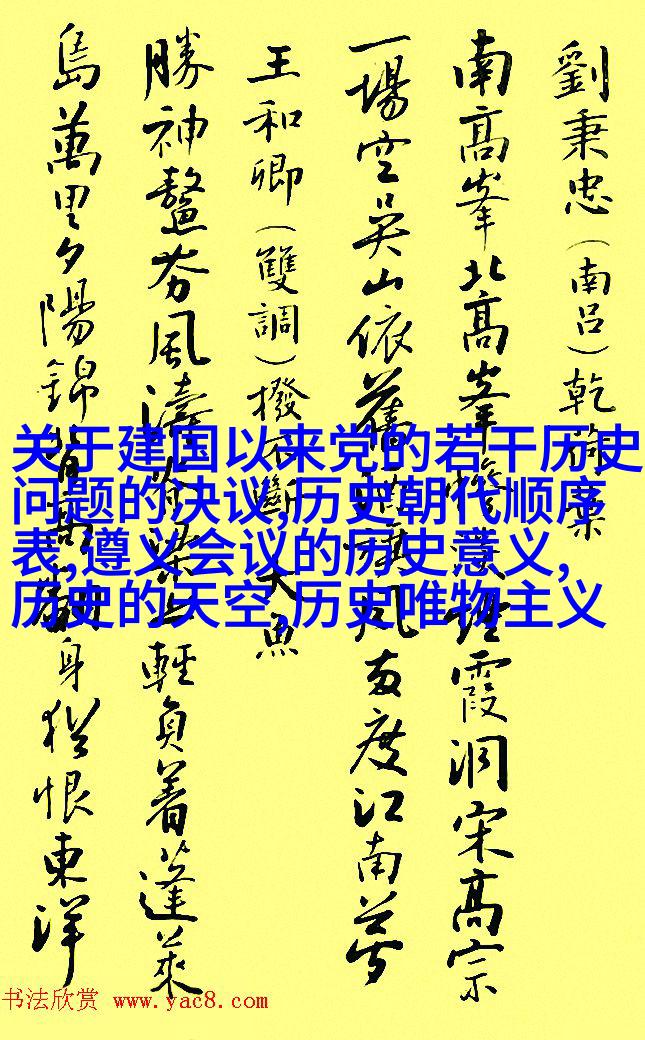 劉秉忠(南呂)乾荷葉
南高峯北高峯惨淡煙霞洞宋高宗
一場空吳山依舊酒旗風兩度江南夢
王和卿(雙調)撥不斷 大魚
勝神鰲夯風濤脊梁上輕負着蓬萊
島萬里夕陽錦背高翻身猶恨東洋
关于建国以来党的若干历史
问题的决议,历史朝代顺序
表,遵义会议的历史意义,
历史的天空,历史唯物主义
书法欣赏 www.yac8.com